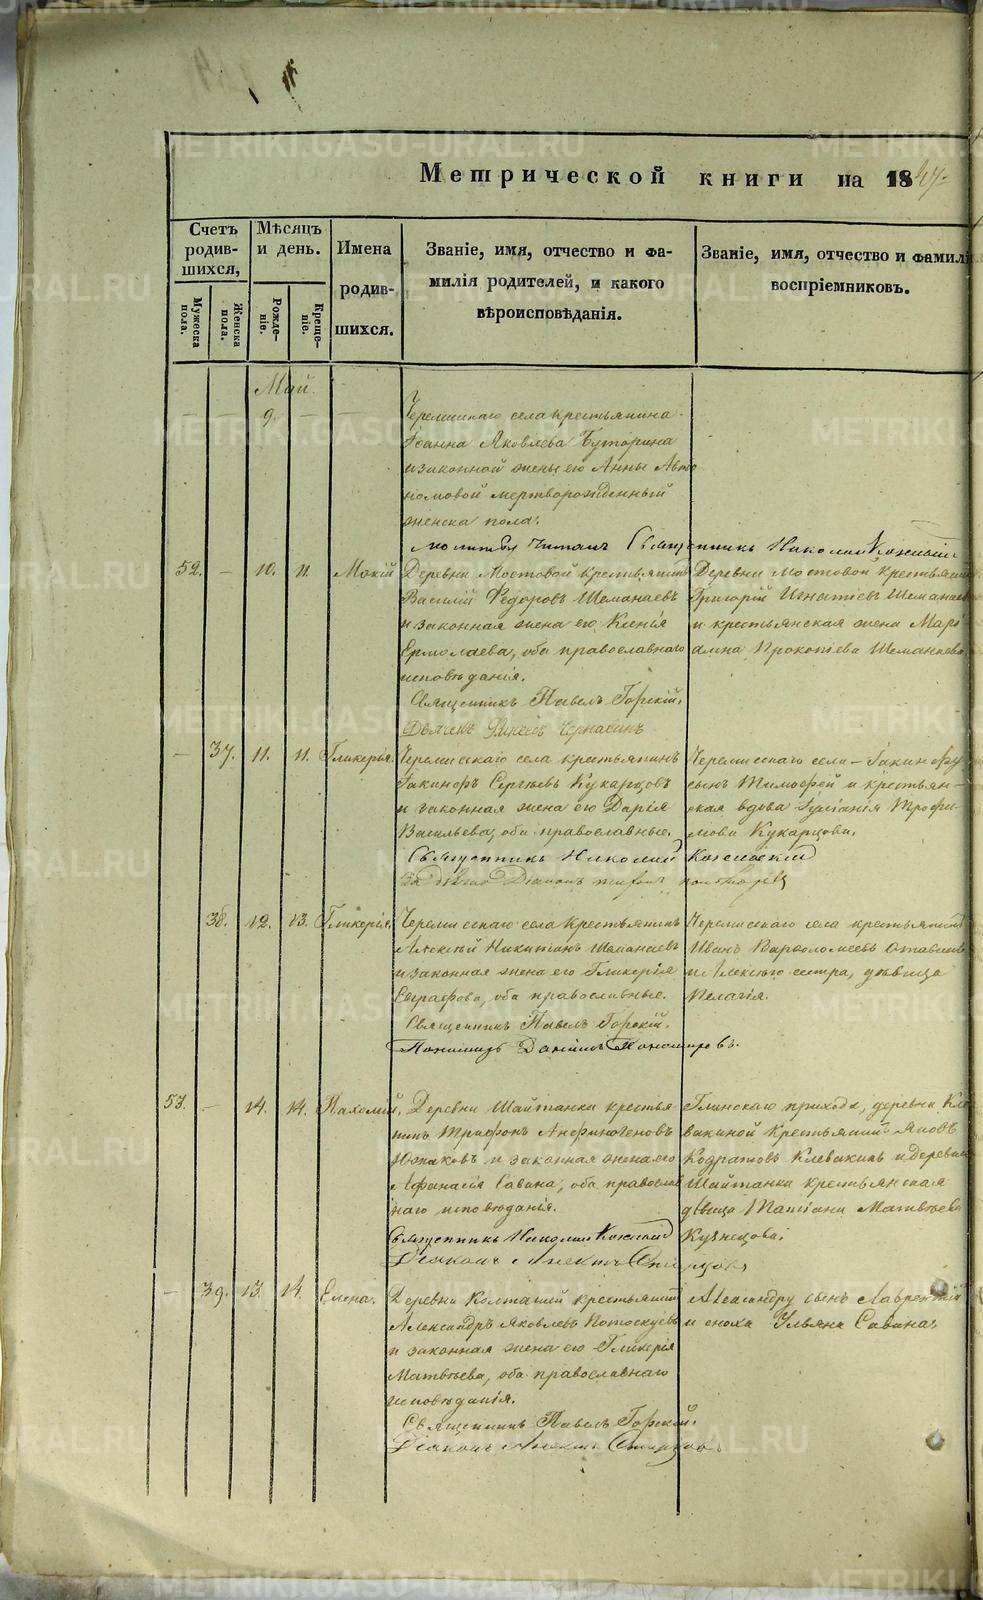 Метрической книги на 1847.
Счетъ родив-шихся,
Мѣсяцъ и день.
Имена родив-шихся.
Званіе, имя, отчество и фа-
милія родителей, и какого
вѣроисповѣданія.
Званіе, имя, отчество и фамилі
воспріемниковъ.
Мужеска пола.
Женска пола.
Рожде-ніе.
Креще-ніе.
Май
— — 9. — —
Черемисскаго села крестьянина
Іоанна Яковлева Буторина
и законной жены его Анны Авто
номовой мертворожденный
женска пола.
Молитву читалъ Священникъ Николай
52. — 10. 11. Мокій
Деревни Мостовой крестьянинъ
Василій Ѳедоровъ Шеманаевъ
и законная жена его Ксенія
Ермолаева, оба православнаго
исповѣданія.
Священникъ Павелъ Горскій.
Деревни Мостовой крестьянинъ
Григорій Игнатіевъ Шеманаев
и крестьянская жена Марі
амна Прокопіева Шеманаева
— 37. 11. 11. Гликерія.
Черемисскаго села крестьянинъ
Іакинфъ Сергѣевъ Кукарцовъ
и законная жена его Дарія
Васильева, оба православные.
Священникъ Николай
Черемисскаго села – Іакинфу
сынъ Тимофей и крестьян-
ская вдова Трофи
мова Кукарцова.
38. 12. 13. Гликерія.
Черемисскаго села крестьянинъ
Алексій Никитинъ Шеманаевъ
и законная жена его Гликерія
Евграфова, оба православные.
Священникъ Павелъ Горскій.
Пономарь Даніилъ Пономаревъ.
Черемисскаго села крестьянинъ
Иванъ Варфоломеевъ
и Алексію сестра, дѣвица
Пелагія.
53. — 14. 14. Пахомій.
Деревни Шайтанки крестья
нинъ Трифонъ Анфиногеновъ
Южаковъ и законная жена его
Афанасія Савина, оба православ
наго исповѣданія.
Священникъ Николай
Діаконъ
Глинскаго прихода, деревни Кле
вакиной крестьянинъ Яковъ
Кодратовъ Клевакинъ и деревни
Шайтанки крестьянская
дѣвица Татіана Матвѣева
Кузнецова.
— 39. 13. 14. Елена.
Деревни Колташей крестьянинъ
Александръ Яковлевъ Потоскуевъ
и законная жена его Гликерія
Матвѣева, оба православнаго
исповѣданія.
Священникъ Павелъ Горскій.
Діаконъ
Александру сынъ Лаврентій
и сноха Ульяна Савина.
METRIKI.GASO-URAL.RU